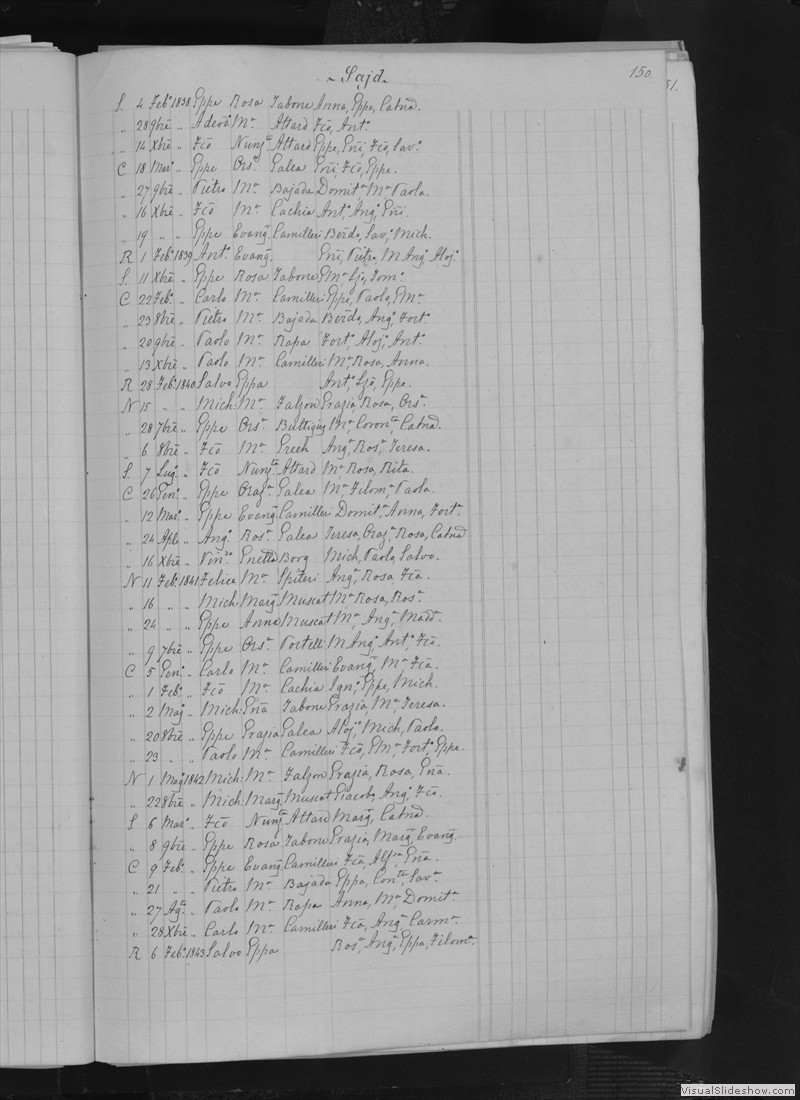 ~ Sajd ~
150.
51.
S. 4 Feb° 1838 Eppe Rosa Tabone Anna, Eppa, Catnã.
„ 28 9bre „ Adeod° Mª Attard Fcõ, Ant°
„ 14 Xbre „ Fcõ Nunzª Attard Eppe, Eñi, Fcõ, Sav°
C 18 Mar° „ Eppe Orsª Galea Eñi, Fcõ, Eppe.
„ 27 9bre „ Pietro Mª Bajada Domitª Mª Paola.
„ 16 Xbre „ Fcõ Mª Cachia Ant°, Ang°, Eñi.
„ 19 „ „ Eppe Evang. Camilleri Berdo, Sav°, Mich.
R 1 Feb° 1839 Ant° Evang. Eñi, Pietro, M Ang°, Aloj°
S. 11 Xbre „ Eppe Rosa Tabone Mª
C 22 Feb° „ Carlo Mª Camilleri Eppe, Paolo, Mª
„ 23 8bre „ Pietro Mª Bajada Berdo, Ang° Fort°
„ 20 9bre „ Paolo Mª Rapa Fort°, Aloj°, Ant°
„ 13 Xbre „ Paolo Mª Camilleri Mª, Rosa, Anna.
R 28 Feb° 1840 Salvo Eppa Ant°, Eppe.
N 15 „ „ Mich: Mª Falzon Grazia, Rosa, Orsª
„ 28 7bre „ Eppe Orsª Buttigieg Mª Coronª, Catnã.
„ 6 8bre „ Fcõ Mª Grech Angª, Rosª, Teresa.
S. 7 Lug° „ Fcõ Nunzª Attard Mª, Rosa, Rita.
C 26 Gen° „ Eppe Orazª Galea Mª, Filomª, Paola.
„ 12 Mar° „ Eppe Evang. Camilleri Domitª, Anna, Fortª
„ 24 Aple „ Ang° Rosª Galea Teresa, Orazª, Rosa, Catnã
„ 16 Xbre „ Vinz° Borg Mich, Paolo, Salvo.
N 11 Feb° 1841 Felice Mª Spiteri Angª, Rosa, Fcã.
„ 16 „ „ Mich: Marg. Muscat Mª Rosa, Rosª
„ 24 „ „ Eppe Anna Muscat Mª, Angª, Maddª
„ 9 7bre „ Eppe Orsª Portelli M Ang°, Ant°, Fcõ.
C 5 Gen° „ Carlo Mª Camilleri Evang., Mª, Fcã.
„ 1 Feb° „ Fcõ Mª Cachia Ign°, Eppe, Mich.
„ 2 Mag° „ Mich: Eñã Tabone Grazia, Mª, Teresa.
„ 20 8bre „ Eppe Grazia Galea Aloj°, Mich, Paolo.
„ 23 „ „ Paolo Mª Camilleri Fcõ, Mª, Fort°, Eppe.
N 1 Mag° 1842 Mich: Mª Falzon Grazia, Rosa, Eñã.
„ 22 8bre „ Mich: Marg. Muscat Giacobo, Ang°, Fcõ.
S 6 Mar° „ Fcõ Nunzª Attard Marg., Catnã.
„ 8 9bre „ Eppe Rosa Tabone Grazia, Marg., Evang.
C 9 Feb° „ Eppe Evang. Camilleri Fcã, Eñã.
„ 21 „ „ Pietro Mª Bajada Eppa, Conᵗᵃ, Savª
„ 27 Ag° „ Paolo Mª Rapa Anna, Mª Domitª
„ 28 Xbre „ Carlo Mª Camilleri Fcã, Angª Carmª
R 6 Feb° 1843 Salvo Eppa Rosª, Angª, Eppa, Filomª
VisualSlideshow.com